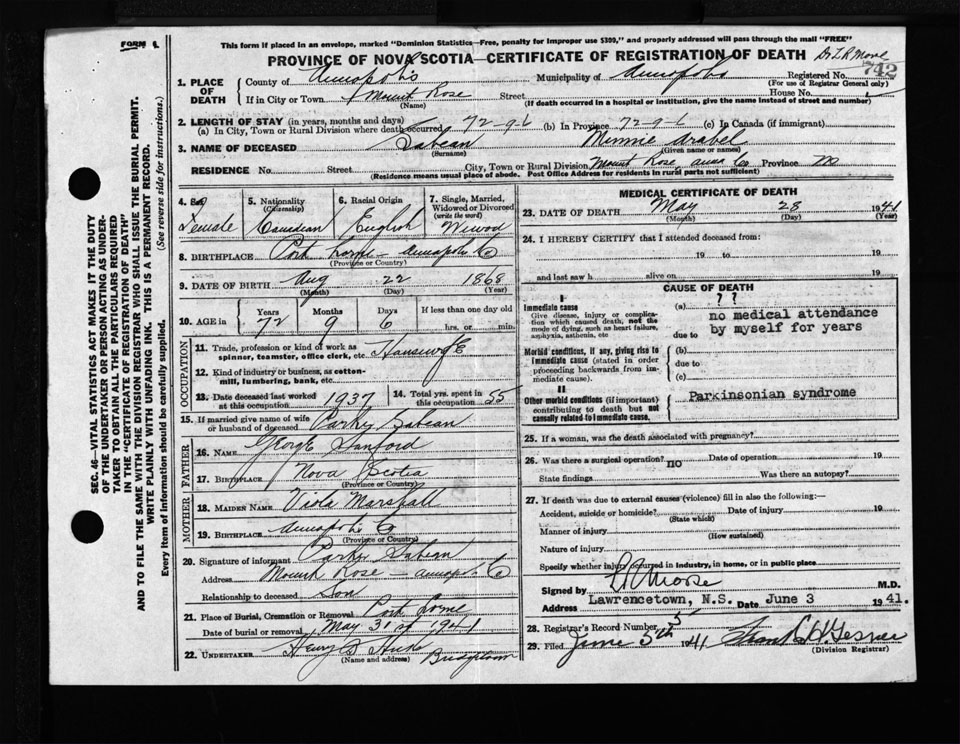 FORM 1.
This form if placed in an envelope, marked "Dominion Statistics—Free, penalty for improper use $300," and properly addressed will pass through the mail "FREE"
PROVINCE OF NOVA SCOTIA—CERTIFICATE OF REGISTRATION OF DEATH Dr L R Morse
742
1. PLACE OF DEATH County of Annapolis Municipality of Annapolis Registered No.
(For use of Registrar General only)
If in City or Town Mount Rose Street House No.
(Name) (If death occurred in a hospital or institution, give the name instead of street and number)
2. LENGTH OF STAY (in years, months and days)
(a) In City, Town or Rural Division where death occurred 72-9-6 (b) In Province 72-9-6 (c) In Canada (if immigrant)
3. NAME OF DECEASED Sabean Minnie Arabel
(Surname) (Given name or names)
RESIDENCE No. Street City, Town or Rural Division Mount Rose Anna Co Province NS
(Residence means usual place of abode. Post Office Address for residents in rural parts not sufficient)
4. Sex Female
5. Nationality (Citizenship) Canadian
6. Racial Origin English
7. Single, Married, Widowed or Divorced (write the word) Widow
8. BIRTHPLACE Port Lorne - Annapolis Co
(Province or Country)
9. DATE OF BIRTH Aug 22 1868
(Month) (Day) (Year)
10. AGE in Years 72 Months 9 Days 6 If less than one day old hrs. or min.
OCCUPATION
11. Trade, profession or kind of work as spinner, teamster, office clerk, etc. Housewife
12. Kind of industry or business, as cotton-mill, lumbering, bank, etc.
13. Date deceased last worked at this occupation 1937
14. Total yrs. spent in this occupation 55
15. If married give name of wife or husband of deceased Parky Sabean
FATHER
16. NAME George Sanford
17. BIRTHPLACE Nova Scotia
(Province or Country)
MOTHER
18. MAIDEN NAME Viola Marshall
19. BIRTHPLACE Annapolis Co
(Province or Country)
20. Signature of informant Parker Sabean
Address Mount Rose - Annapolis Co
Relationship to deceased Son
21. Place of Burial, Cremation or Removal Port Lorne
Date of burial or removal May 31st 1941
22. UNDERTAKER Henry S Hicks Bridgetown
(Name and address)
MEDICAL CERTIFICATE OF DEATH
23. DATE OF DEATH May 28 1941
(Month) (Day) (Year)
24. I HEREBY CERTIFY that I attended deceased from:
19 to 19
and last saw h alive on 19
CAUSE OF DEATH
I
Immediate cause
Give disease, injury or complication which caused death, not the mode of dying, such as heart failure, asphyxia, asthenia, etc
(a) ? ?
no medical attendance
due to by myself for years
Morbid conditions, if any, giving rise to immediate cause (stated in order proceeding backwards from immediate cause).
(b)
due to
(c)
II
Other morbid conditions (if important) contributing to death but not causally related to immediate cause.
Parkinsonian syndrome
25. If a woman, was the death associated with pregnancy?
26. Was there a surgical operation? no Date of operation 19
State findings Was there an autopsy?
27. If death was due to external causes (violence) fill in also the following:—
Accident, suicide or homicide? Date of injury 19
(State which)
Manner of injury
(How sustained)
Nature of injury
Specify whether injury occurred in industry, in home, or in public place
Signed by L R Morse M.D.
Address Lawrencetown, N.S. Date June 3 1941.
28. Registrar's Record Number 5
29. Filed June 5th 1941 Frank H Gesner
(Division Registrar)
SEC. 46—VITAL STATISTICS ACT MAKES IT THE DUTY
OF THE UNDERTAKER OR PERSON ACTING AS UNDER-
TAKER TO OBTAIN ALL THE PARTICULARS REQUIRED
IN THE "CERTIFICATE OF REGISTRATION OF DEATH"
AND TO FILE THE SAME WITH THE DIVISION REGISTRAR WHO SHALL ISSUE THE BURIAL PERMIT.
WRITE PLAINLY WITH UNFADING INK. THIS IS A PERMANENT RECORD.
Every item of information should be carefully supplied. (See reverse side for instructions.)